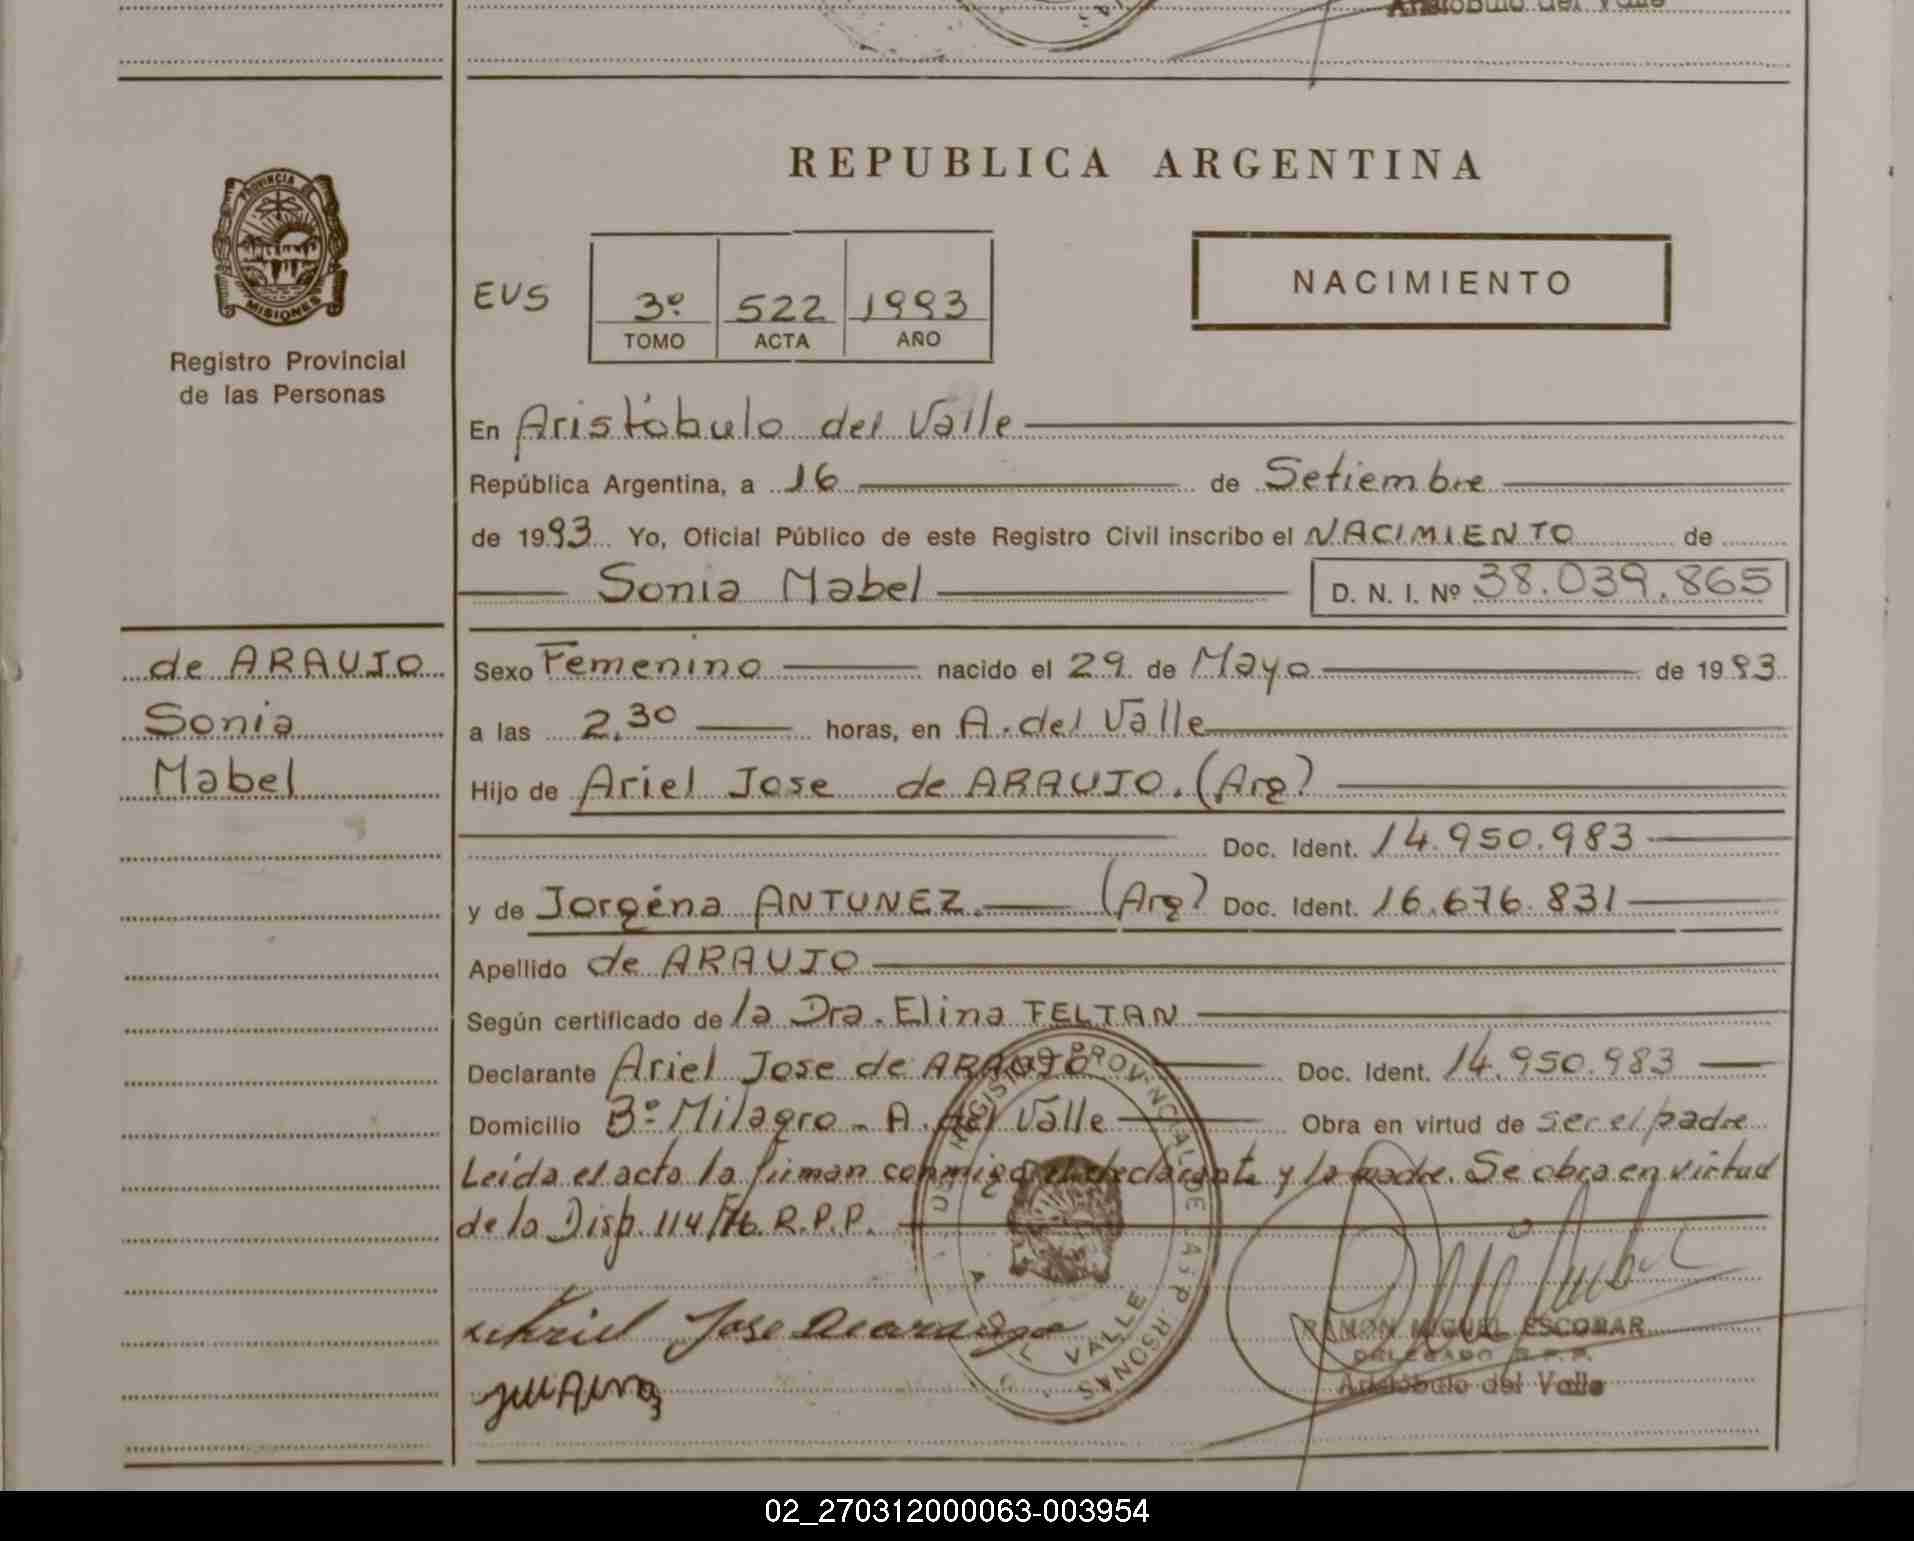 Aristóbulo del Valle
REPUBLICA ARGENTINA
PROVINCIA DE
MISIONES
Registro Provincial
de las Personas
EUS
3º 522 1993
TOMO ACTA AÑO
NACIMIENTO
En Aristóbulo del Valle
República Argentina, a 16 de Setiembre
de 1993 Yo, Oficial Público de este Registro Civil inscribo el NACIMIENTO de
Sonia Mabel D. N. I. Nº 38.039.865
de ARAUJO
Sonia
Mabel
Sexo Femenino nacido el 29 de Mayo de 1993
a las 2,30 horas, en A. del Valle
Hijo de Ariel Jose de ARAUJO. (Arg)
Doc. Ident. 14.950.983
y de Jorgéna ANTUNEZ. (Arg) Doc. Ident. 16.676.831
Apellido de ARAUJO
Según certificado de la Dra. Elina FELTAN
Declarante Ariel Jose de ARAUJO Doc. Ident. 14.950.983
Domicilio Bº Milagro - A. del Valle Obra en virtud de ser el padre
Leída el acta la firman conmigo el declarante y la madre. Se obra en virtud
de la Disp. 114/76. R.P.P.
REGISTRO PROVINCIAL DE LAS PERSONAS
VALLE
Ariel Jose Dearaujo
RAMON MIGUEL ESCOBAR
DELEGADO R.P.P.
Aristóbulo del Valle
02_270312000063-003954